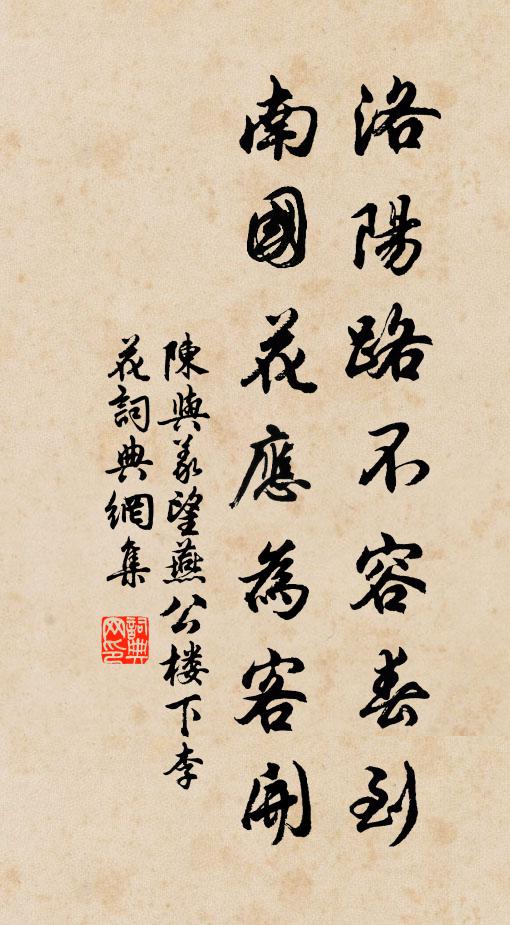 洛陽路不容春到
南國花應為客開
陳與義望燕公楼下李
花詞典網集
詞典
网印